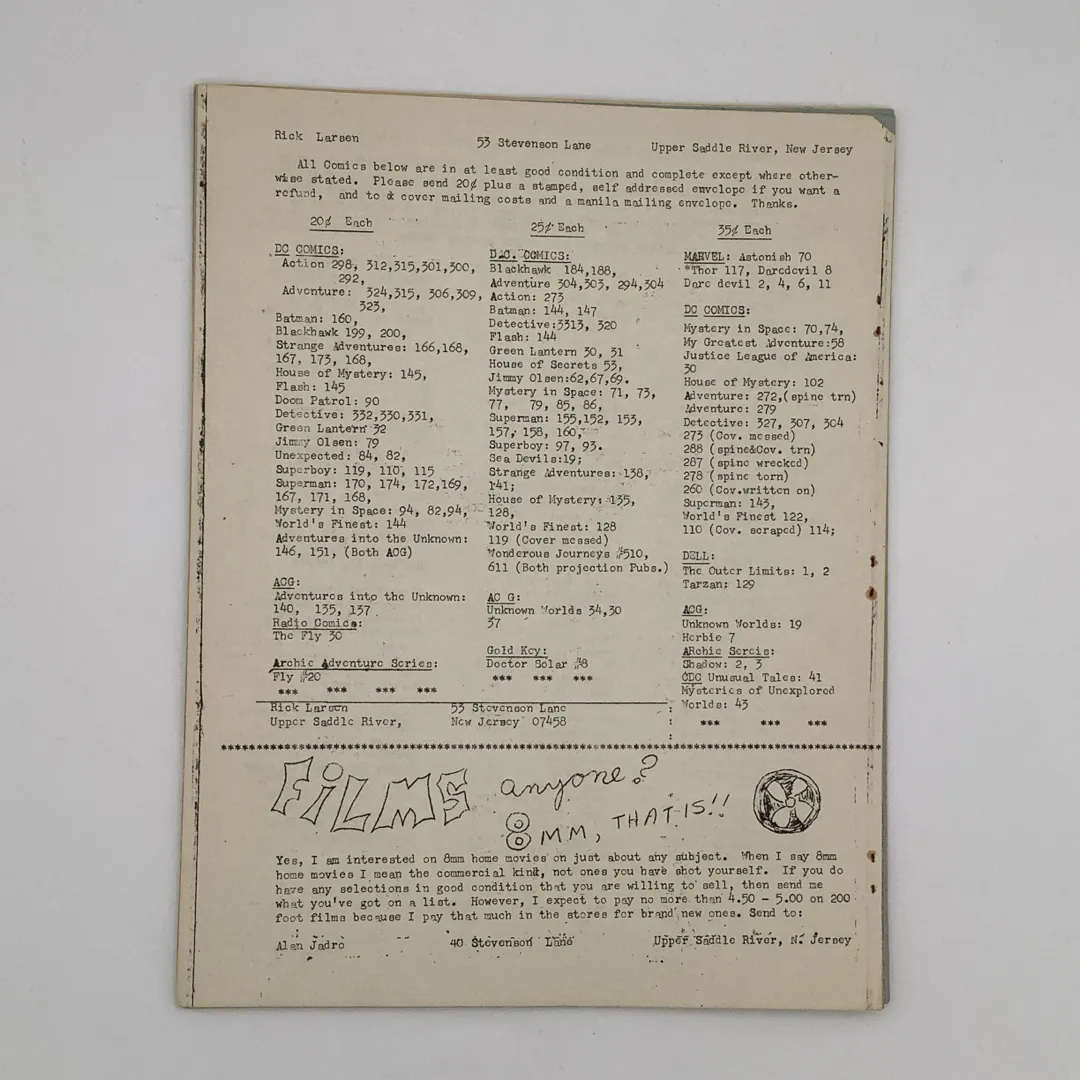 Rick Larsen 53 Stevenson Lane Upper Saddle River, New Jersey
All Comics below are in at least good condition and complete except where other-
wise stated. Please send 20¢ plus a stamped, self addressed envelope if you want a
refund, and to & cover mailing costs and a manila mailing envelope. Thanks.
20¢ Each
DC COMICS:
Action 298, 312,315,301,300,
292,
Adventure: 324,315, 306,309,
323,
Batman: 160,
Blackhawk 199, 200,
Strange Adventures: 166,168,
167, 173, 168,
House of Mystery: 145,
Flash: 145
Doom Patrol: 90
Detective: 332,330,331,
Green Lantern 32
Jimmy Olsen: 79
Unexpected: 84, 82,
Superboy: 119, 110, 115
Superman: 170, 174, 172,169,
167, 171, 168,
Mystery in Space: 94, 82,94,
World's Finest: 144
Adventures into the Unknown:
146, 151, (Both ACG)
ACG:
Adventures into the Unknown:
140, 135, 137
Radio Comics:
The Fly 30
Archie Adventure Series:
Fly #20
*** *** *** ***
25¢ Each
D.C. COMICS:
Blackhawk 184,188,
Adventure 304,303, 294,304
Action: 273
Batman: 144, 147
Detective:3313, 320
Flash: 144
Green Lantern 30, 31
House of Secrets 53,
Jimmy Olsen:62,67,69.
Mystery in Space: 71, 73,
77, 79, 85, 86,
Superman: 155,152, 153,
157, 158, 160,
Superboy: 97, 93.
Sea Devils:19;
Strange Adventures: 138,
141;
House of Mystery: 135,
128,
World's Finest: 128
119 (Cover messed)
Wonderous Journeys #510,
611 (Both projection Pubs.)
AC G:
Unknown Worlds 34,30
37
Gold Key:
Doctor Solar #8
*** *** ***
35¢ Each
MARVEL: Astonish 70
*Thor 117, Daredevil 8
Dare devil 2, 4, 6, 11
DC COMICS:
Mystery in Space: 70,74,
My Greatest Adventure:58
Justice League of America:
30
House of Mystery: 102
Adventure: 272,(spine trn)
Adventure: 279
Detective: 327, 307, 304
273 (Cov. messed)
288 (spine&Cov. trn)
287 (spine wrecked)
278 (spine torn)
260 (Cov.written on)
Superman: 143,
World's Finest 122,
110 (Cov. scraped) 114;
DELL:
The Outer Limits: 1, 2
Tarzan: 129
ACG:
Unknown Worlds: 19
Herbie 7
ARchie Sereis:
Shadow: 2, 3
CDC Unusual Tales: 41
Mysteries of Unexplored
Worlds: 43
*** *** ***
Rick Larsen 53 Stevenson Lane
Upper Saddle River, New Jersey 07458
FiLMS anyone?
8 MM, THAT IS!!
Yes, I am interested on 8mm home movies on just about any subject. When I say 8mm
home movies I mean the commercial kind, not ones you have shot yourself. If you do
have any selections in good condition that you are willing to sell, then send me
what you've got on a list. However, I expect to pay no more than 4.50 - 5.00 on 200
foot films because I pay that much in the stores for brand new ones. Send to:
Alan Jadro 40 Stevenson Lane Upper Saddle River, N. Jersey